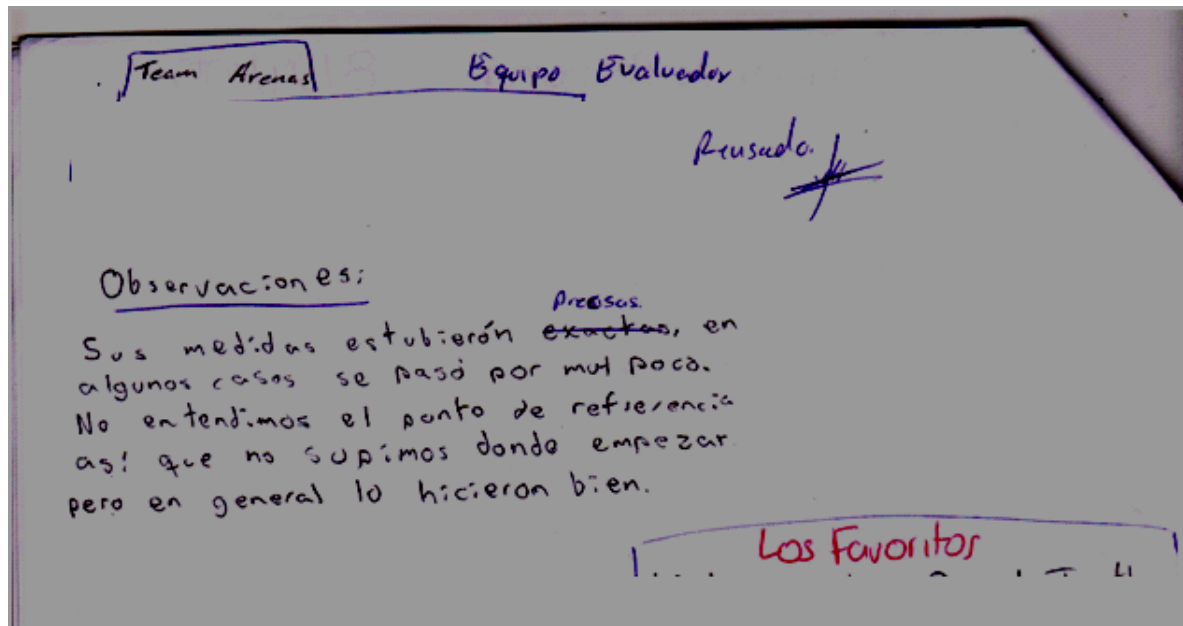 Team Arenas Equipo Evaluador
Revisado.
Observaciones:
Precisas.
Sus medidas estubierón exactas, en
algunos casos se pasó por mul poco.
No entendimos el punto de refserencia
así que no supimos donde empezar
pero en general lo hicieron bien.
Los Favoritos